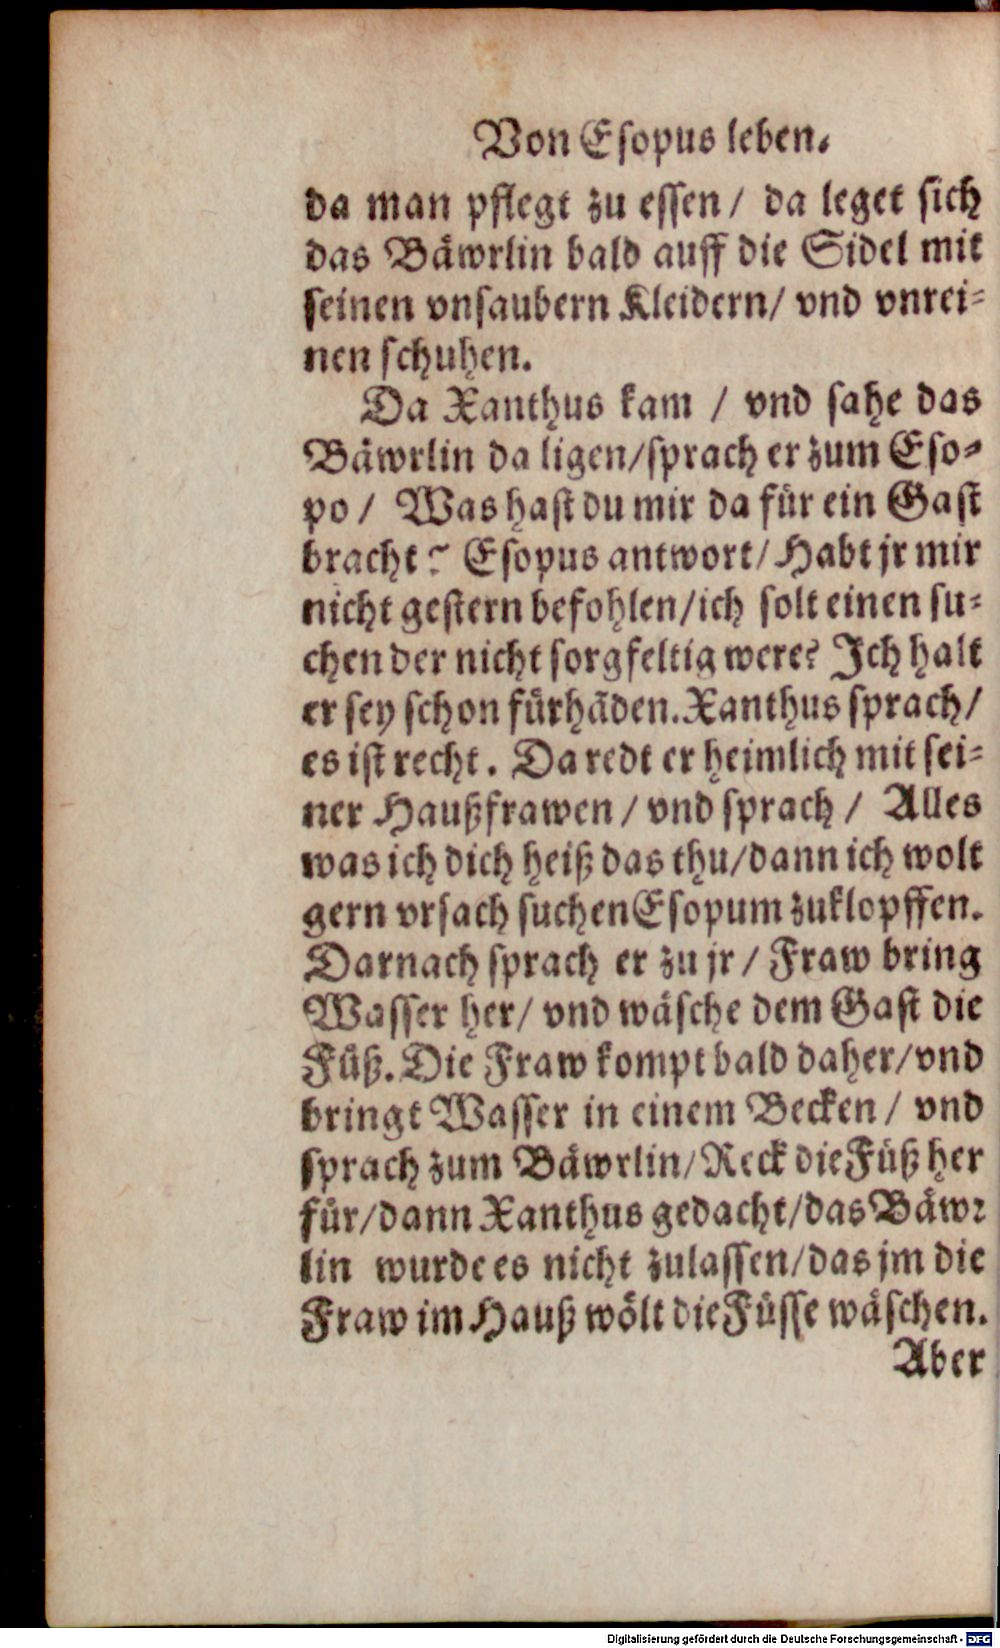 Von Esopus leben.
da man pflegt zu essen / da leget sich
das Bäwrlin bald auff die Sidel mit
seinen vnsaubern Kleidern/ vnd vnrei-
nen schuhen.
Da Xanthus kam / vnd sahe das
Bäwrlin da ligen/sprach er zum Eso-
po / Was hast du mir da für ein Gast
bracht? Esopus antwort/ Habt jr mir
nicht gestern befohlen/ich solt einen su-
chen der nicht sorgfeltig were? Ich halt
er sey schon fürhãden. Xanthus sprach/
es ist recht. Da redt er heimlich mit sei-
ner Haußfrawen / vnd sprach / Alles
was ich dich heiß das thu/dann ich wolt
gern vrsach suchen Esopum zuklopffen.
Darnach sprach er zu jr / Fraw bring
Wasser her/ vnd wäsche dem Gast die
Füß. Die Fraw kompt bald daher/vnd
bringt Wasser in einem Becken / vnd
sprach zum Bäwrlin/Reck die Füß her
für/dann Xanthus gedacht/das Bäwr
lin wurde es nicht zulassen/das jm die
Fraw im Hauß wölt die Füsse wäschen.
Aber
Digitalisierung gefördert durch die Deutsche Forschungsgemeinschaft - DFG